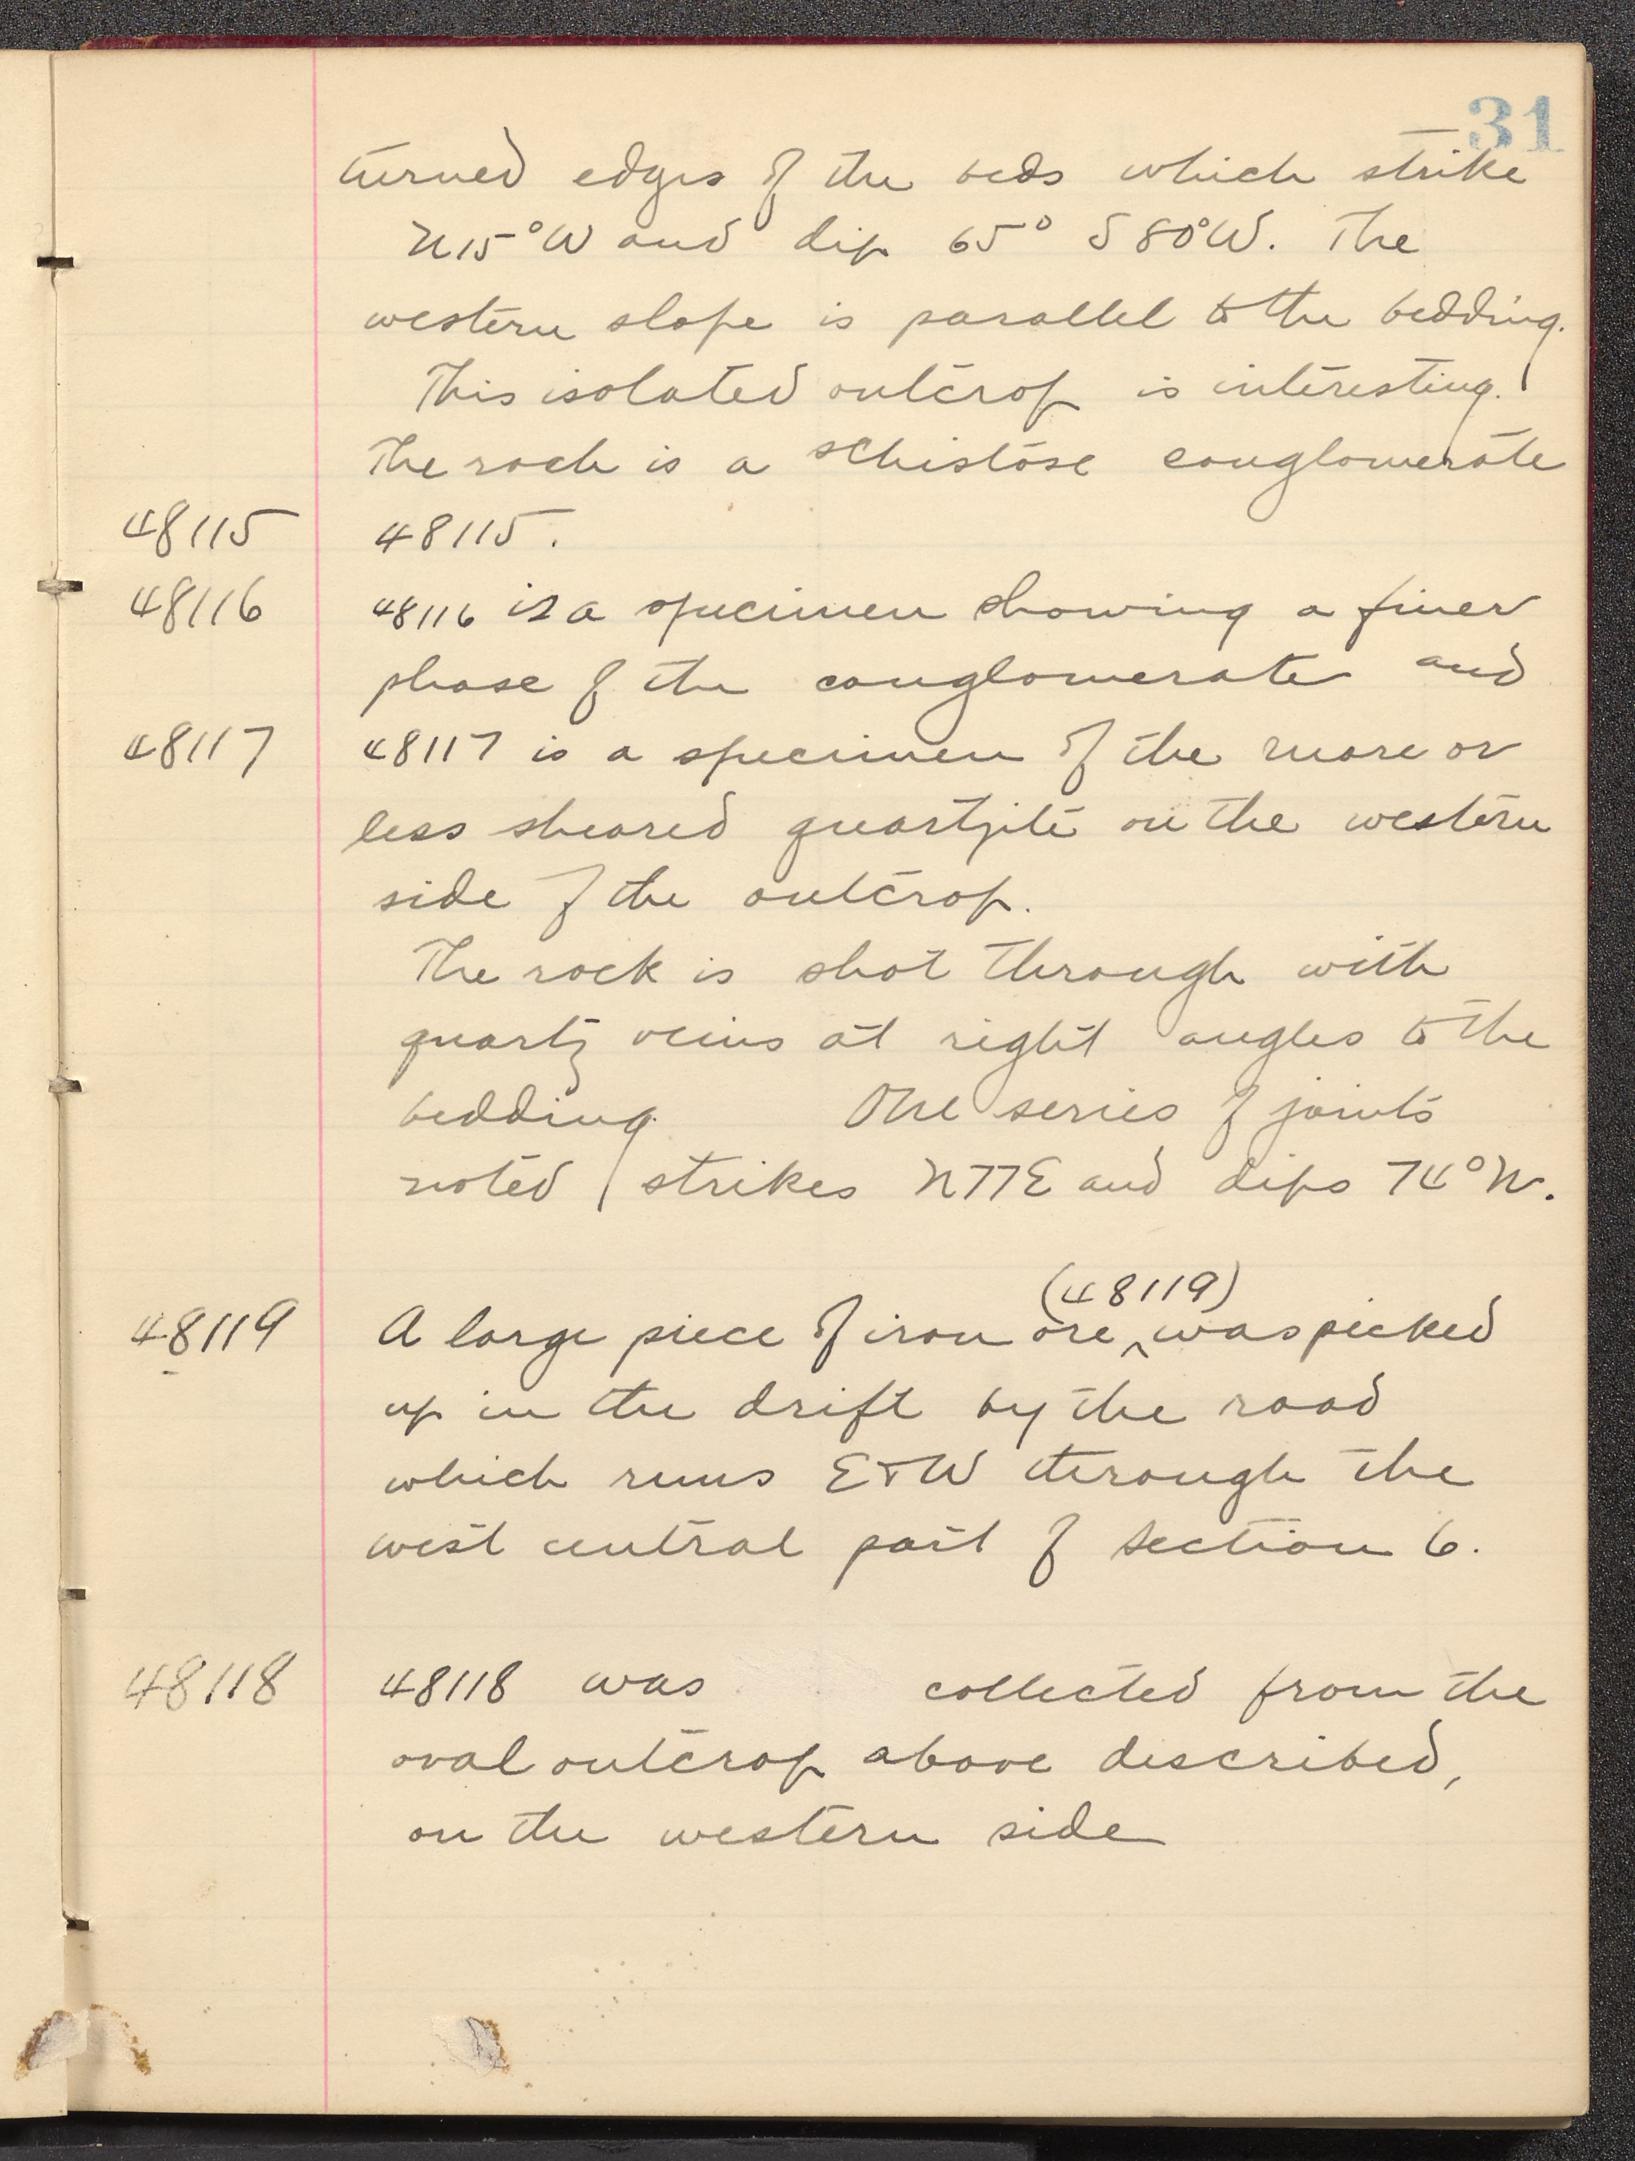 31
turned edges of the beds which strike
N15°W and dip 65° S80°W. The
western slope is parallel to the bedding.
This isolated outcrop is interesting.
The rock is a schistose conglomerate
48115 48115.
48116 48116 is a specimen showing a finer
phase of the conglomerate and
48117 48117 is a specimen of the more or
less sheared quartzite on the western
side of the outcrop.
The rock is shot through with
quartz veins at right angles to the
bedding. One series of joints
noted strikes N77E and dips 74°N.
(48119)
48119 A large piece of iron ore ^ was picked
up in the drift by the road
which runs E+W through the
west central part of section 6.
48118 48118 was collected from the
oval outcrop above described,
on the western side